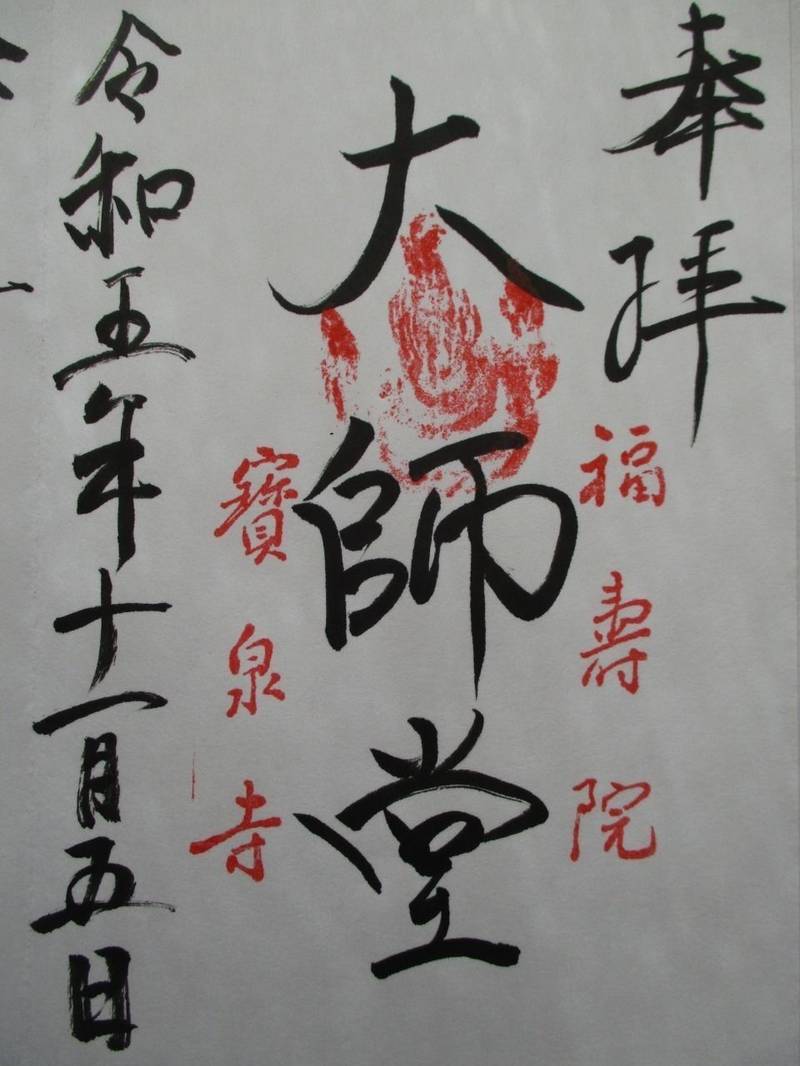 奉拝
福壽院
大師堂
寶泉寺
令和五年十一月五日